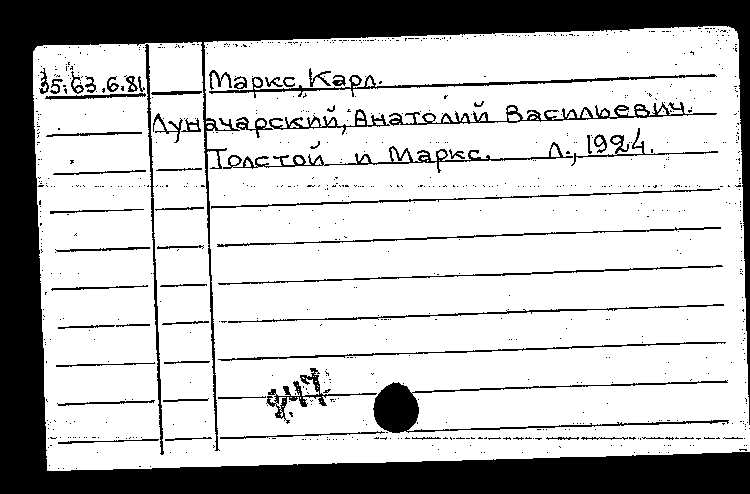 35.63.6.81. Маркс, Карл.
Луначарский, Анатолий Васильевич.
Толстой и Маркс. Л., 1924.